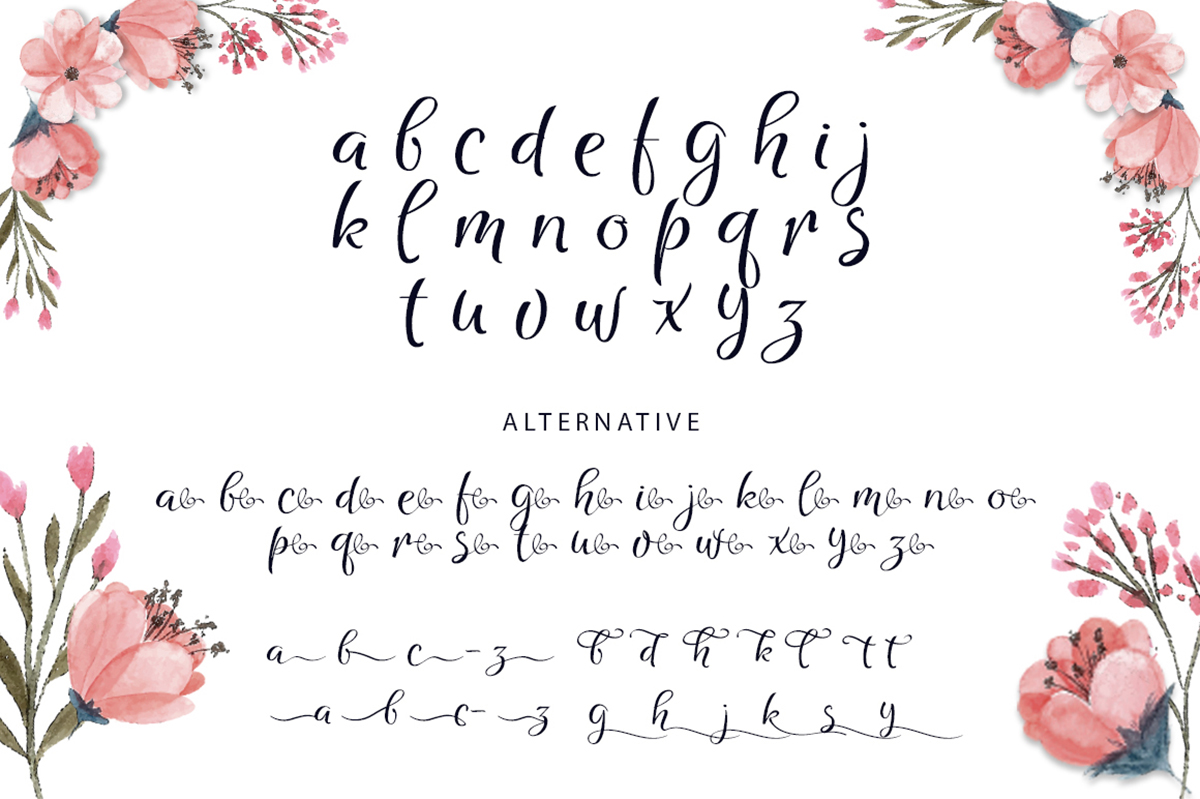 a b c d e f g h i j
k l m n o p q r s
t u v w x y z
ALTERNATIVE
a b c d e f g h i j k l m n o
p q r s t u v w x y z
a b c - z b d h k l t t
a b c - z g h j k s y